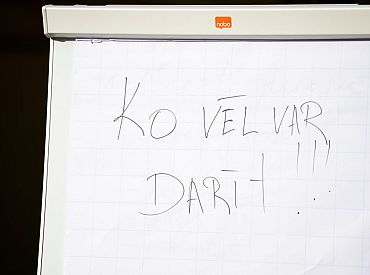 nobo
KO VĒL VAR
DARĪT!!!...